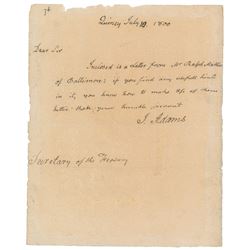 Quincy July 19, 1800
Dear Sir
Inclosed is a Letter from Mr Ralph
of Baltimore: if you find any usefull hint
in it, you know how to make use of them
better than your humble servant
J. Adams
Secretary of the Treasury